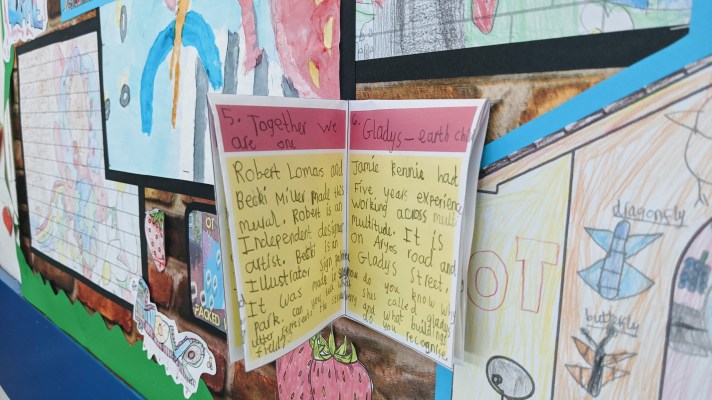 5. Together we
are one
Robert Lomas and
Becki Miller made this
mural. Robert is an
Independent designer
artist. Becki is an
Illustrator sign
It was made in
park. can you
represents the
6. Gladys - earth chi
Jamie Rennie had
Five years experience
working across mult
multitude. It is
on Argos road and
Gladys Street,
do you know why
shes called gladys
and what buildings
do you recognise
OT
dragonfly
butterfly
PACKED